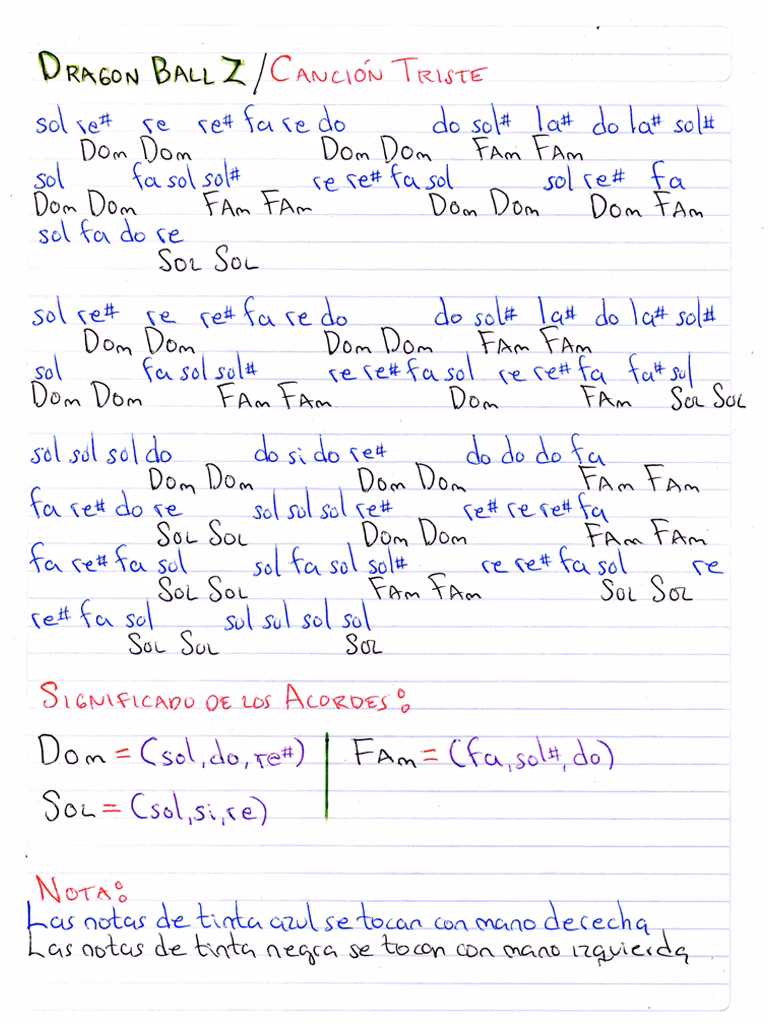 DRAGON BALL Z / CANCIÓN TRISTE
sol re# re re# fa re do do sol# la# do la# sol#
DOm DOm DOm DOm FAm FAm
sol fa sol sol# re re# fa sol sol re# fa
DOm DOm FAm FAm DOm DOm DOm FAm
sol fa do re
SOL SOL
sol re# re re# fa re do do sol# la# do la# sol#
DOm DOm DOm DOm FAm FAm
sol fa sol sol# re re# fa sol re re# fa fa# sol
DOm DOm FAm FAm DOm FAm SOL SOL
sol sol sol do do si do re# do do do fa
DOm DOm DOm DOm FAm FAm
fa re# do re sol sol sol re# re# re re# fa
SOL SOL DOm DOm FAm FAm
fa re# fa sol sol fa sol sol# re re# fa sol re
SOL SOL FAm FAm SOL SOL
re# fa sol sol sol sol sol
SOL SOL SOL
SIGNIFICADO DE LOS ACORDES:
DOm = (sol, do, re#) FAm = (fa, sol#, do)
SOL = (sol, si, re)
NOTA:
Las notas de tinta azul se tocan con mano derecha
Las notas de tinta negra se tocan con mano izquierda